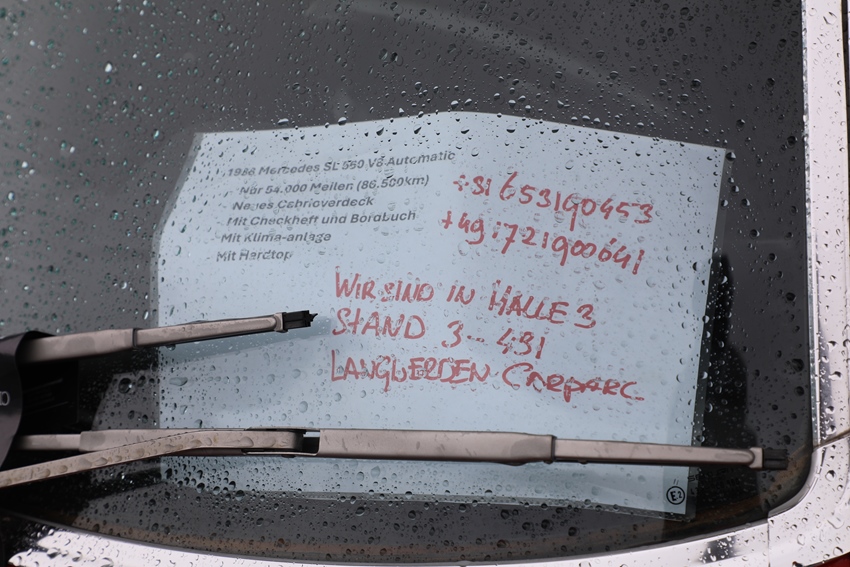 1986 Mercedes SL 560 V8 Automatic
Nur 54.000 Meilen (86.500km)
Neues Cabrioverdeck
Mit Checkheft und Bordbuch
Mit Klima-anlage
Mit Hardtop
+31 653190453
+49 1721900641
WIR SIND IN HALLE 3
STAND 3-431
LANGWERDEN
E2